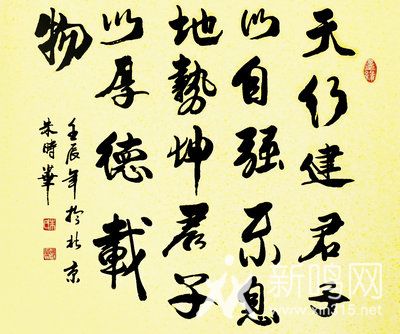 天行建君子
以自强不息
地勢坤君子
以厚德載
物
壬辰年於北京
朱時華
新鸣网
www.xin315.net